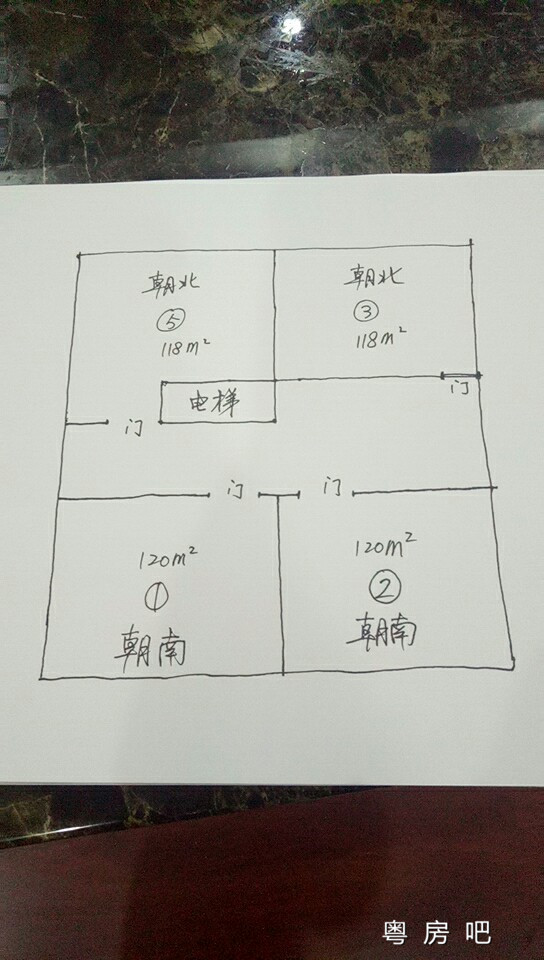 朝北
⑤
118m²
朝北
③
118m²
电梯
门
门
门
门
120m²
①
朝南
120m²
②
朝南
粤房吧